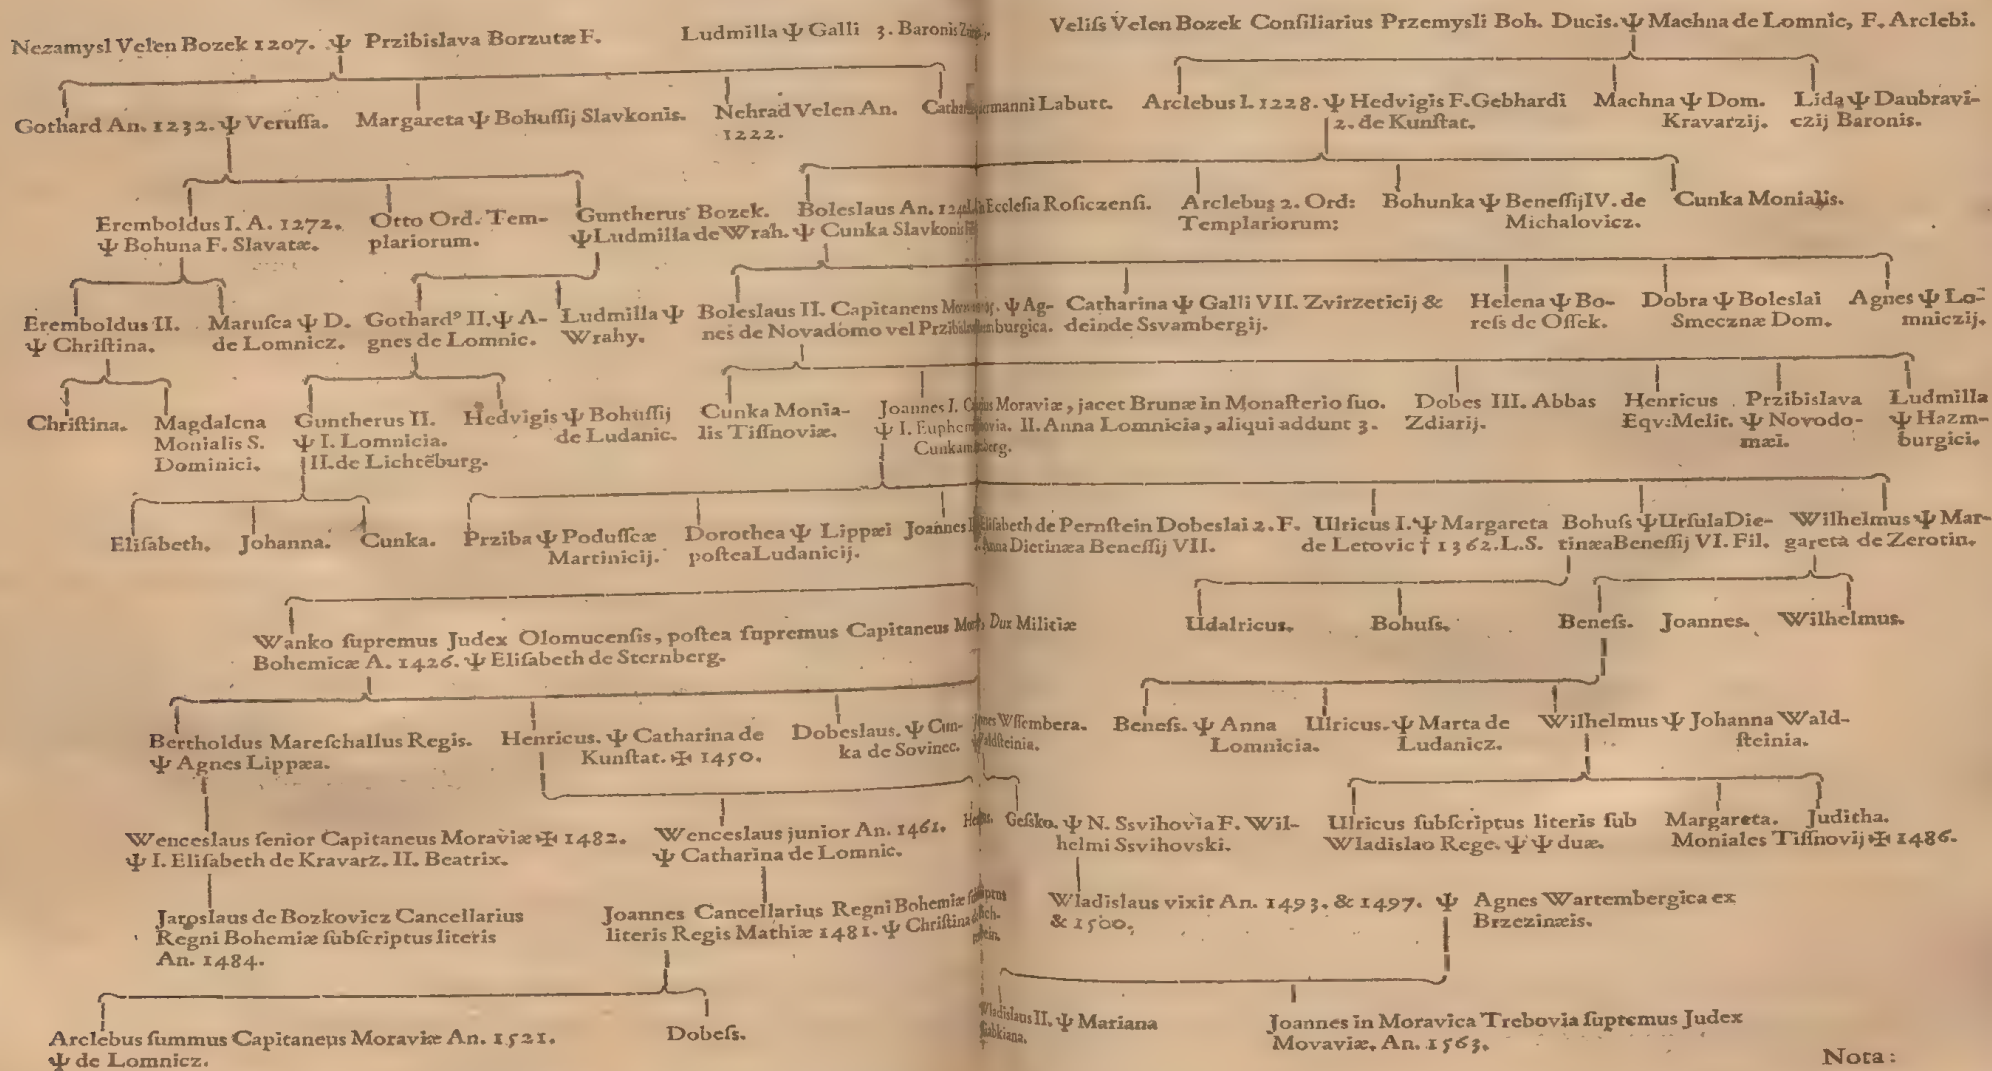 Nezamysl Velen Bozek 1207. Ψ Przibislava Borzutæ F.
Ludmilla Ψ Galli 3. Baronis
Veliſs Velen Bozek Conſiliarius Przemysli Boh. Ducis. Ψ Machna de Lomnic, F. Arclebi.
Gothard An. 1232. Ψ Veruſſa.
Margareta Ψ Bohuſſij Slavkonis.
Nehrad Velen An.
1222.
Labutt.
Arclebus I. 1228. Ψ Hedvigis F. Gebhardi
2. de Kunſtat.
Machna Ψ Dom.
Kravarzij.
Lida Ψ Daubravi-
czij Baronis.
Eremboldus I. A. 1272.
Ψ Bohuna F. Slavatæ.
Otto Ord. Tem-
plariorum.
Guntherus Bozek.
Ψ Ludmilla de Wrah.
Boleslaus An. Eccleſia Roſiczenſi.
Ψ Cunka
Arclebus 2. Ord:
Templariorum:
Bohunka Ψ Beneſſij IV. de
Michalovicz.
Cunka Monialis.
Eremboldus II.
Ψ Chriſtina.
Maruſca Ψ D.
de Lomnicz.
Gothardꝰ II. Ψ A-
gnes de Lomnic.
Ludmilla Ψ
Wrahy.
Boleslaus II. Capitanens Ψ Ag-
nes de Novadomo vel
Catharina Ψ Galli VII. Zvirzeticij &
deinde Ssvambergij.
Helena Ψ Bo-
reſs de Oſſek.
Dobra Ψ Boleslai
Smecznæ Dom.
Agnes Ψ Lo-
mniczij.
Chriſtina.
Magdalena
Monialis S.
Dominici.
Guntherus II.
Ψ I. Lomnicia.
II. de Lichtẽburg.
Hedvigis Ψ Bohuſſij
de Ludanic.
Cunka Monia-
lis Tiſſnoviæ.
Joannes I. Moraviæ, jacet Brunæ in Monaſterio ſuo.
Ψ I. II. Anna Lomnicia, aliqui addunt 3.
Dobes III. Abbas
Zdiarij.
Henricus
Eqv: Melit.
Przibislava
Ψ Novodo-
mæi.
Ludmilla
Ψ Hazm-
burgici.
Eliſabeth.
Johanna.
Cunka.
Prziba Ψ Poduſſcæ
Martinicij.
Dorothea Ψ Lippæi
poſtea Ludanicij.
Joannes Eliſabeth de Pernſtein Dobeslai 2. F.
Anna Dietinæa Beneſſij VII.
Ulricus I. Ψ Margareta
de Letovic † 1362. L. S.
Bohuſs Ψ Urſula Die-
tinæa Beneſſij VI. Fil.
Wilhelmus Ψ Mar-
gareta de Zerotin.
Wanko ſupremus Judex Olomucenſis, poſtea ſupremus Capitaneus Dux Militiæ
Bohemicæ A. 1426. Ψ Eliſabeth de Sternberg.
Udalricus.
Bohuſs.
Beneſs.
Joannes.
Wilhelmus.
Bertholdus Mareſchallus Regis.
Ψ Agnes Lippæa.
Henricus. Ψ Catharina de
Kunſtat. ✠ 1450.
Dobeslaus. Ψ Cun-
ka de Sovinec.
Wſſembera.
Beneſs. Ψ Anna
Lomnicia.
Ulricus. Ψ Marta de
Ludanicz.
Wilhelmus Ψ Johanna Wald-
ſteinia.
Wenceslaus ſenior Capitaneus Moraviæ ✠ 1482.
Ψ I. Eliſabeth de Kravarz. II. Beatrix.
Wenceslaus junior An. 1461.
Ψ Catharina de Lomnic.
Geſsko. Ψ N. Ssvihovia F. Wil-
helmi Ssvihovski.
Ulricus ſubſcriptus literis ſub
Wladislao Rege. Ψ Ψ duæ.
Margareta. Juditha.
Moniales Tiſſnovij ✠ 1486.
Jaroslaus de Bozkovicz Cancellarius
Regni Bohemiæ ſubſcriptus literis
An. 1484.
Joannes Cancellarius Regni Bohemiæ
literis Regis Mathiæ 1481. Ψ Chriſtina
Wladislaus vixit An. 1493. & 1497. Ψ
& 1500.
Agnes Wartembergica ex
Brzezinæis.
Arclebus ſummus Capitaneus Moraviæ An. 1521.
Ψ de Lomnicz.
Dobeſs.
Wladislaus II. Ψ Mariana
Joannes in Moravica Trebovia ſupremus Judex
Movaviæ. An. 1563.
Nota: